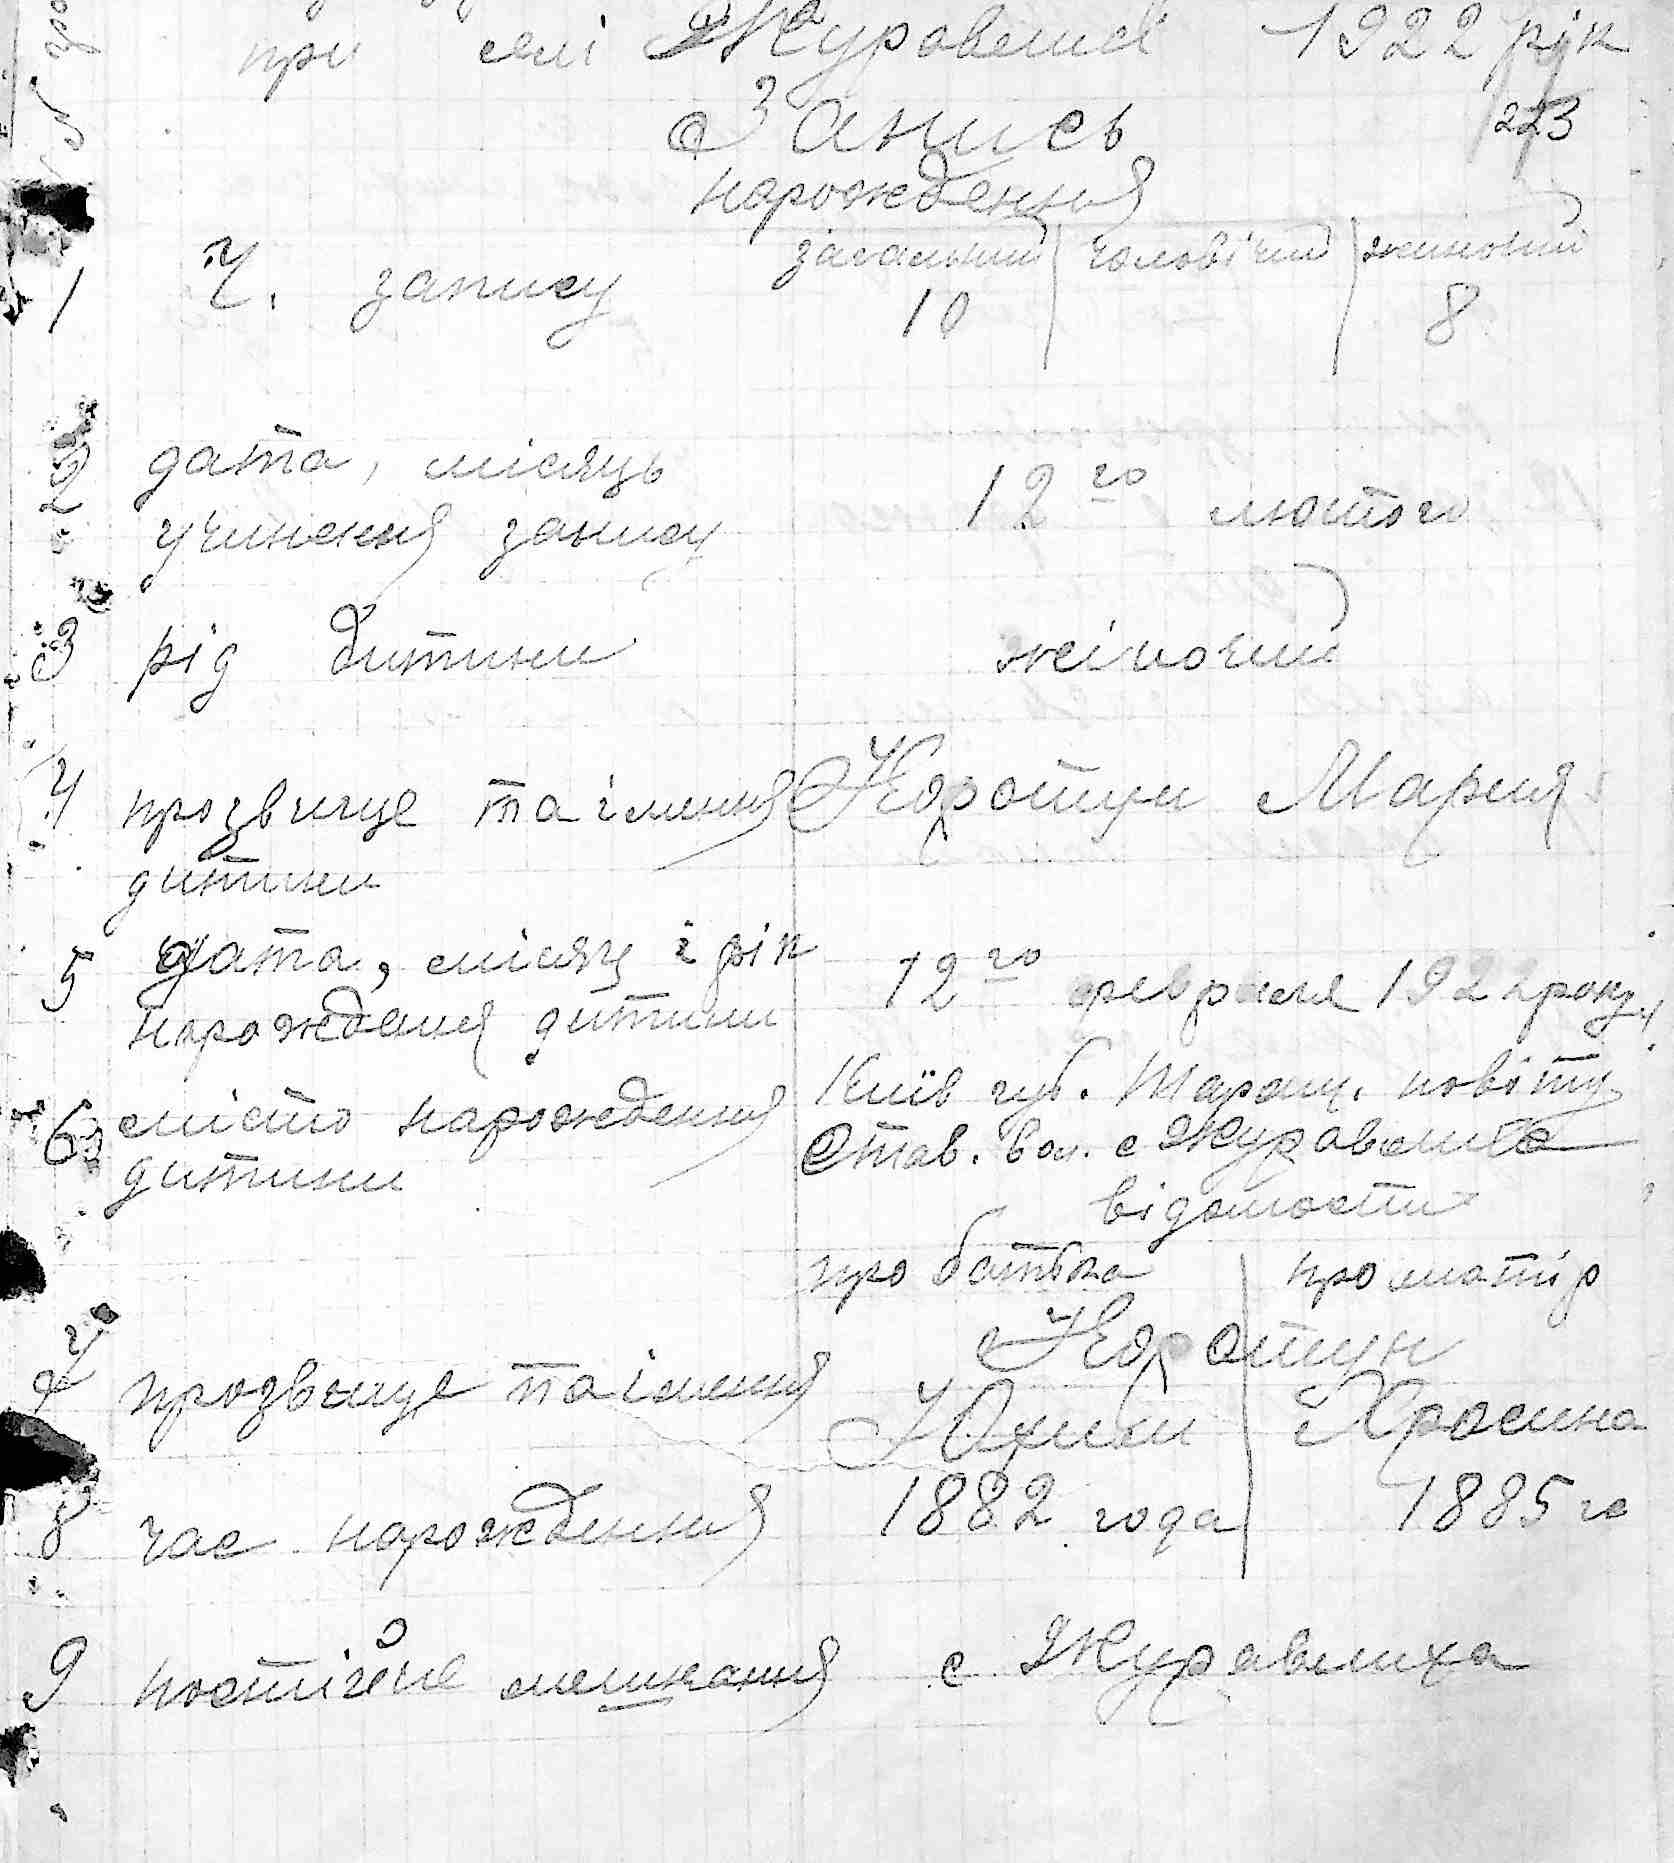 при селі Журавлисі 1922 рік
Запись 223
нарождення
загальний чоловічий жиночий
1 Ч. запису 10 8
2 дата, місяць
учинения запису 12го лютого
3 рід дитини жіночий
4 прозвище та імення Коротун Мария
дитини
5 Дата, місяц і рік 12го февраля 1922 року
нарождения дитини
Київ губ. Таращ. повіту
6 місто нарождения Став. вол. с Журавлиха
дитини
відомости
про батька про матір
Коротун
7 прозвище та імення Юхим Хросина
8 час нарождення 1882 года 1885 го
9 постійне мешкання с Журавлиха